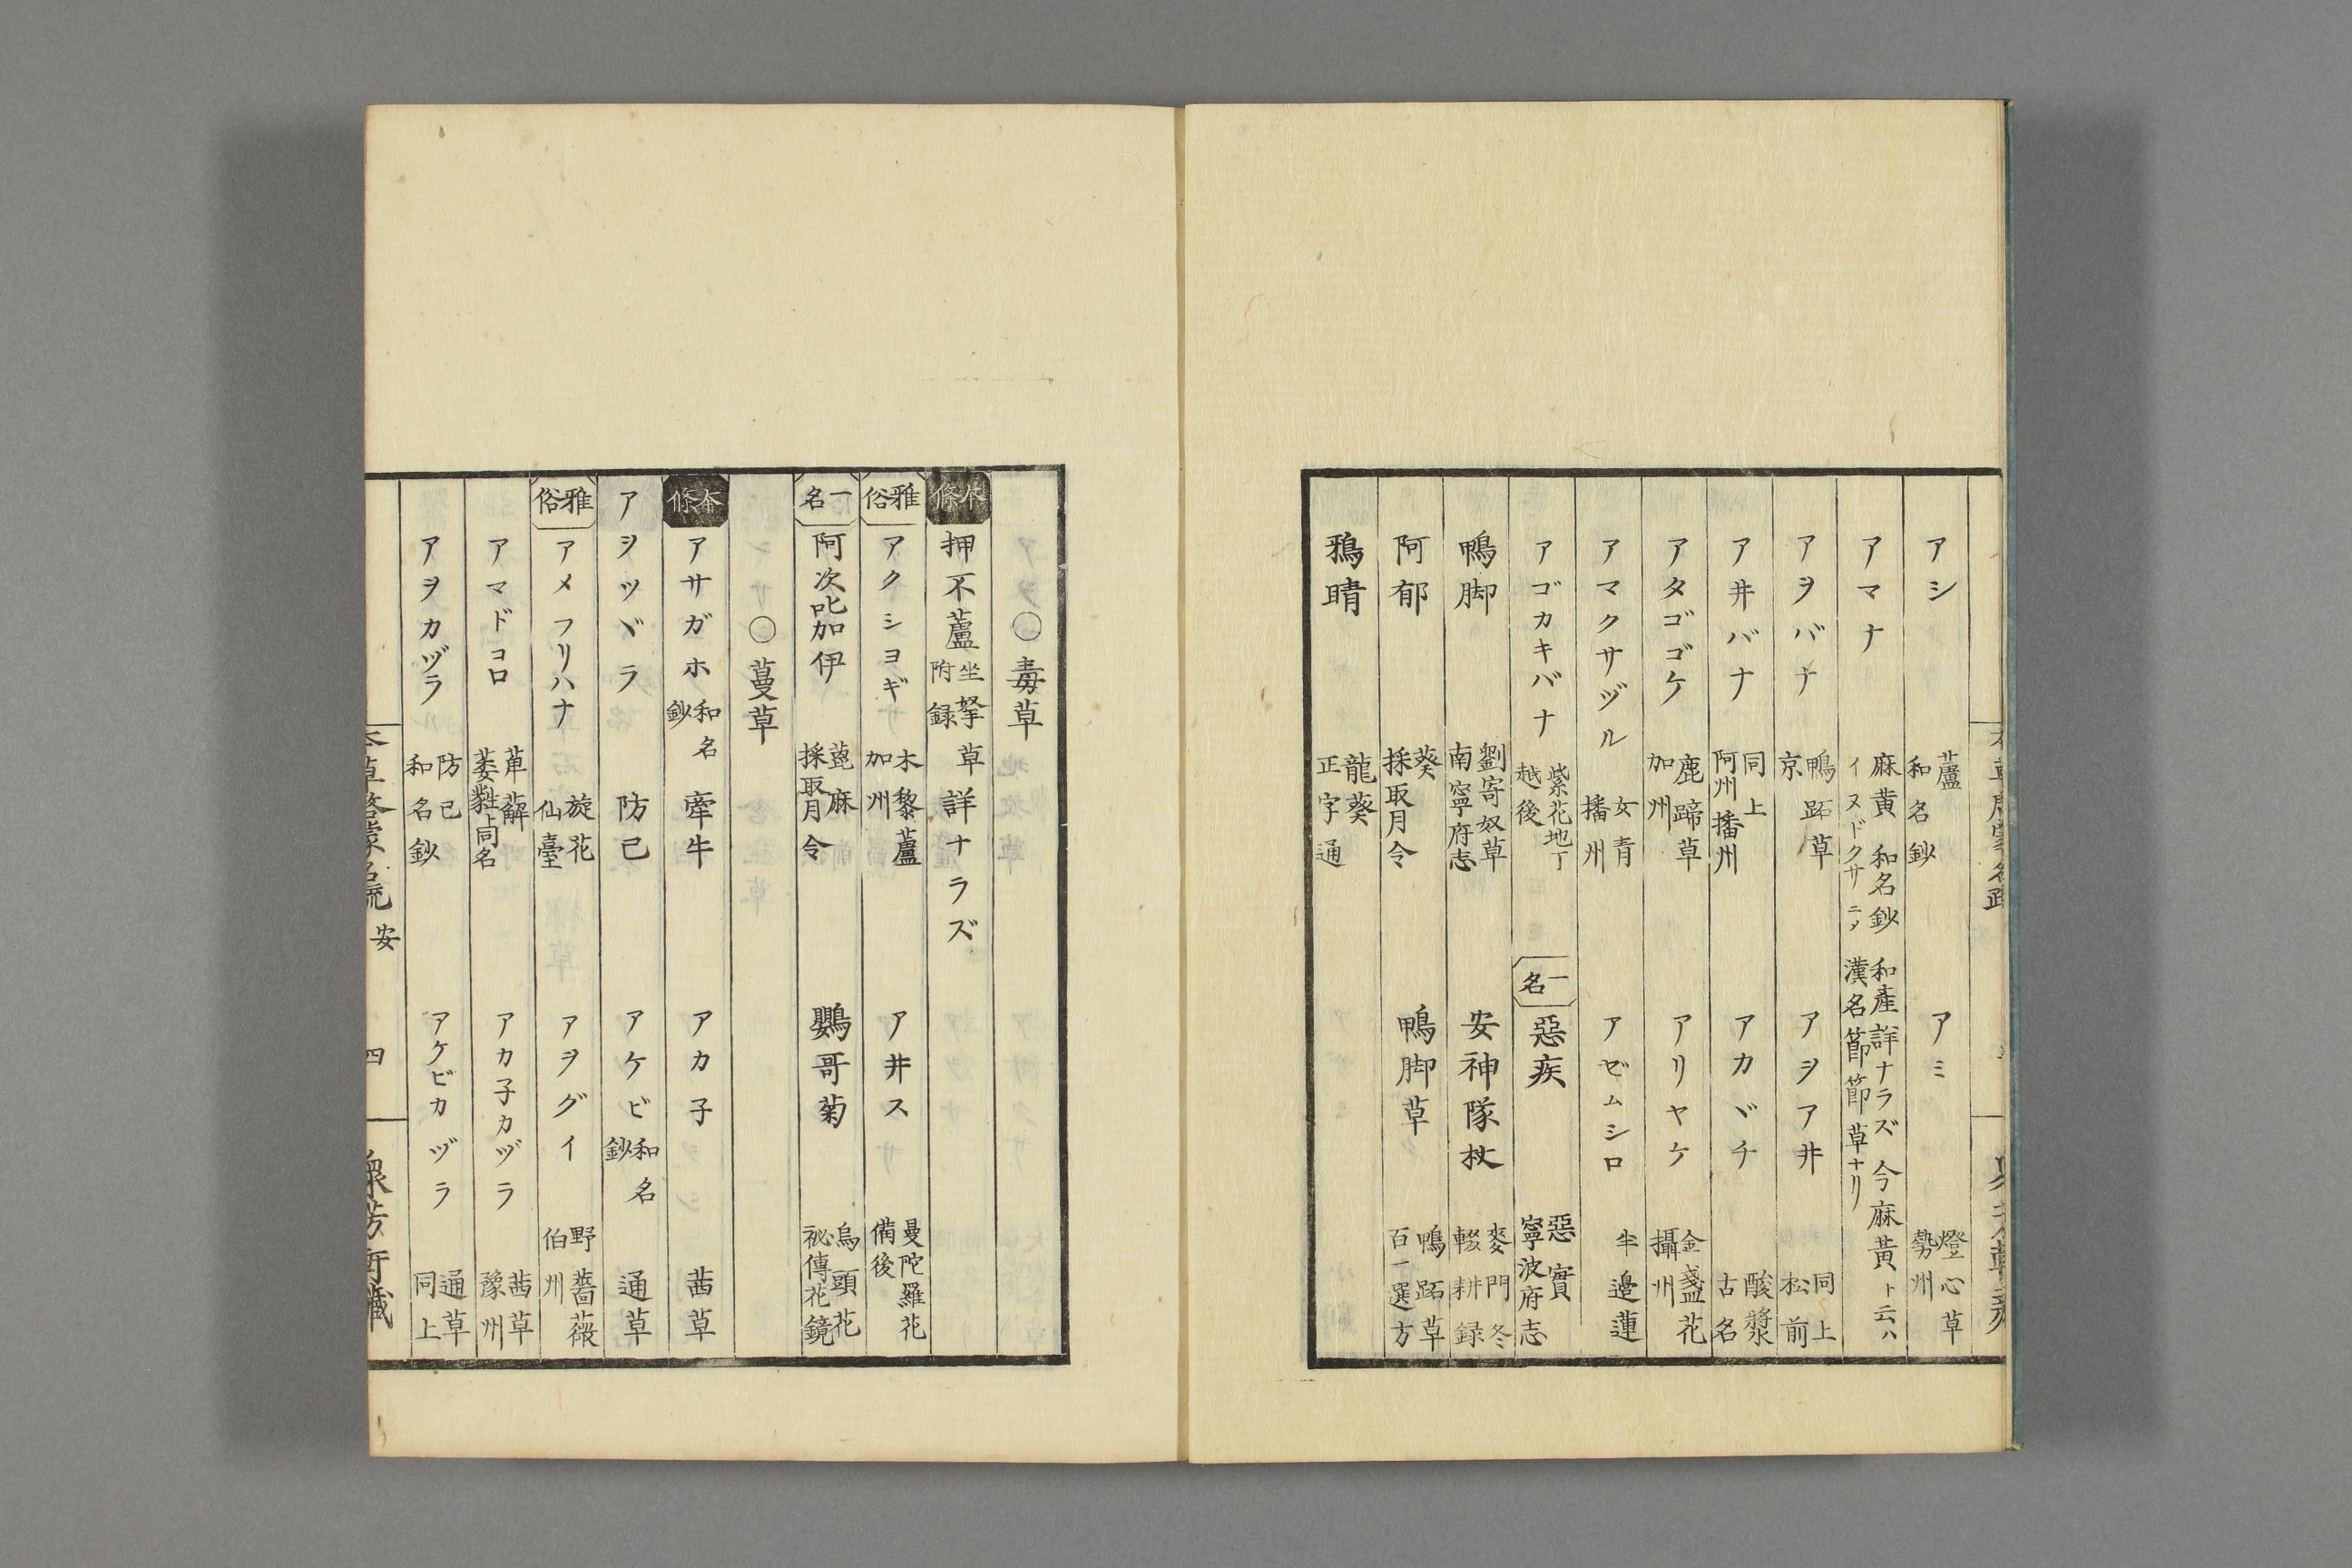 アシ 蘆 和名鈔 アミ 燈心草 勢州
アマナ 麻黄 和名鈔 和產詳ナラズ 今麻黄ト云ハ イヌドクサニ〆 漢名節節草ナリ
アヲバナ 鴨跖草 京 アヲアヰ 同上 松前
アヰバナ 同上 阿州 播州 アカヾチ 酸漿 古名
アタゴゴケ 鹿蹄草 加州 アリヤケ 金盞花 攝州
アマクサヅル 女青 播州 アゼムシロ 半邉蓮
アゴカキバナ 紫花地丁 越後 一名 惡疾 惡實 寧波府志
鴨脚 劉寄奴草 南寧府志 安神隊杖 麥門冬 輟耕録
阿郁 葵 採取月令 鴨脚草 鴨跖草 百一選方
鴉晴 龍葵 正字通
○毒草
本條 押不蘆 坐拏草 附録 詳ナラズ
雅俗 アクシヨギ 木黎蘆 加州 アヰス 曼陀羅花 備後
一名 阿次叱加伊 蓖麻 採取月令 鸚哥菊 烏頭花 祕傳花鏡
○蔓草
本條 アサガホ 和名鈔 牽牛 アカ子 茜草
アヲツヾラ 防己 アケビ 和名鈔 通草
雅俗 アメフリハナ 旋花 仙臺 アヲグイ 野薔薇 伯州
アマドコロ 萆薢 萎蕤同名 アカ子カヅラ 茜草 豫州
アヲカヅラ 防己 和名鈔 アケビカヅラ 通草 同上
本草啓蒙名疏 安 四 衆芳軒藏